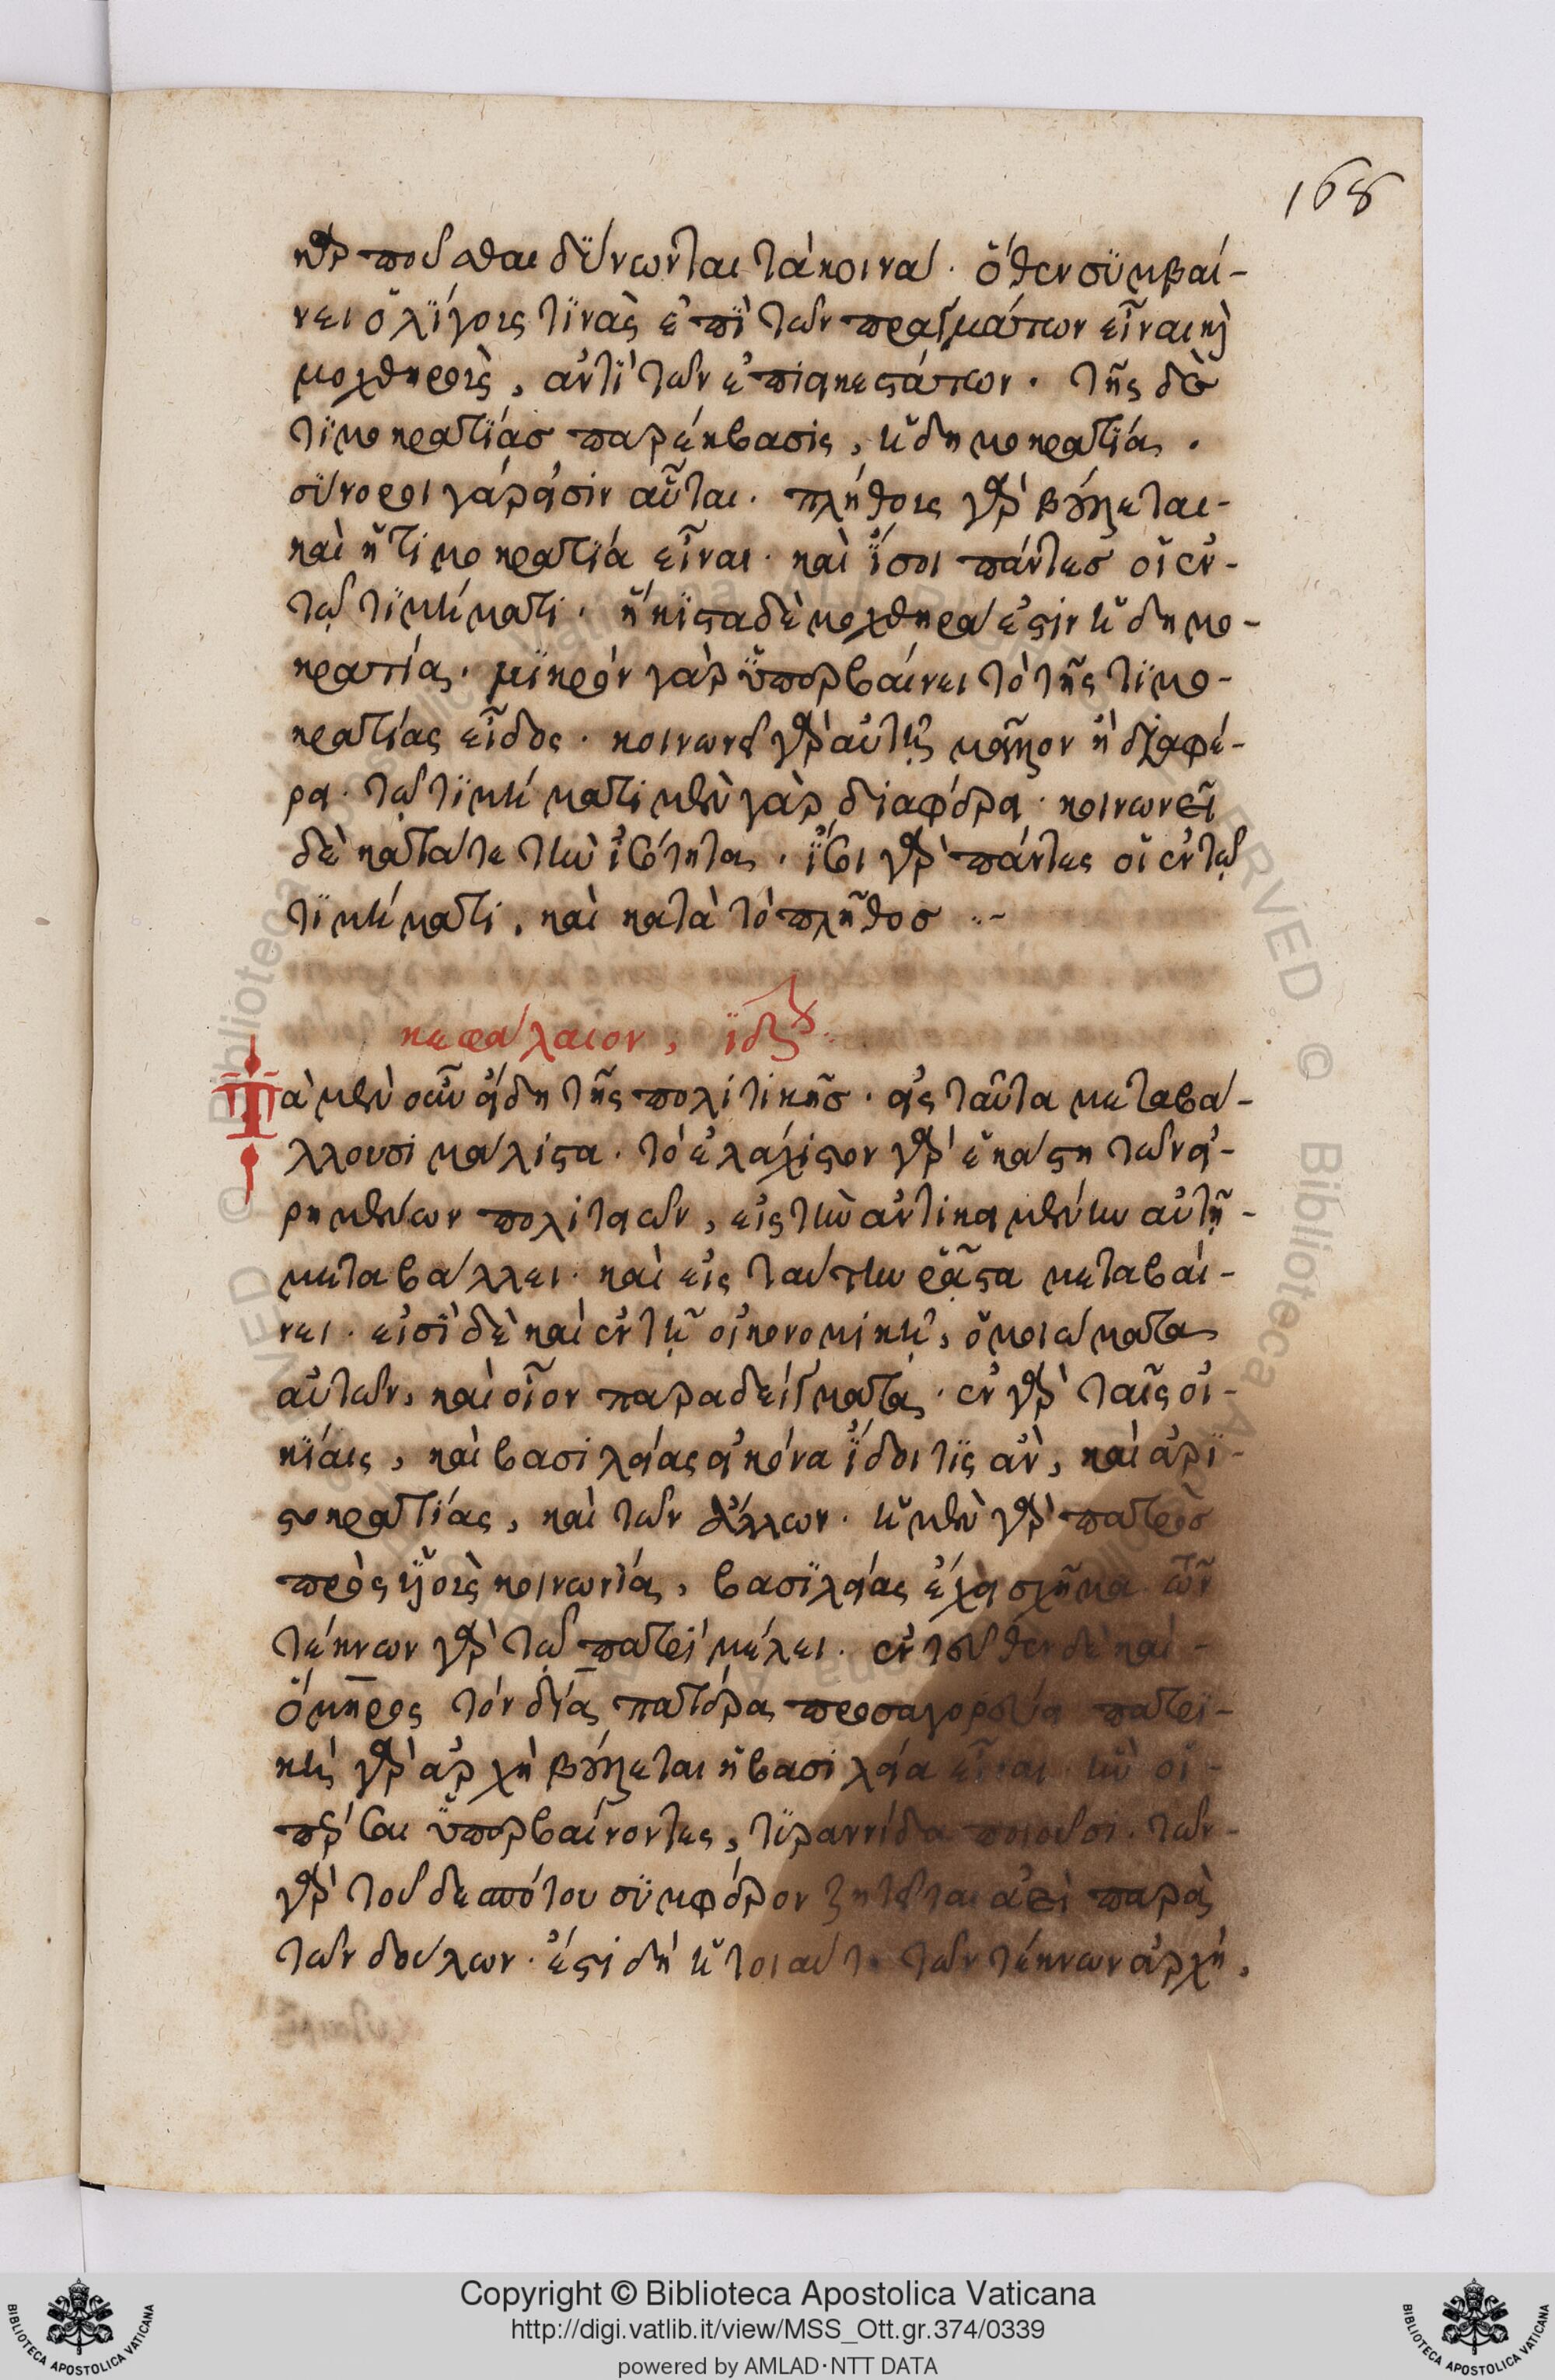 168
κερποῦσθαι δύνωνται τὰ κοινά. ὅθεν συμβαί-
νει ὀλίγους τινὰς ἐπὶ τῶν πραγμάτων εἶναι καὶ
μοχθηροὺς, ἀντὶ τῶν ἐπιεικεστάτων. τῆς δὲ
τιμοκρατίας παρέκβασις, ἡ δημοκρατία.
σύνοροι γάρ εἰσιν αὗται. πλήθους γὰρ βούλεται
καὶ ἡ τιμοκρατία εἶναι. καὶ ἴσοι πάντες οἱ ἐν
τῷ τιμήματι. ἥκιστα δὲ μοχθηρά ἐστιν ἡ δημο-
κρατία. μικρὸν γὰρ ὑπερβαίνει τὸ τῆς τιμο-
κρατίας εἶδος. κοινωνεῖ γὰρ αὐτῇ μᾶλλον ἢ διαφέ-
ρει. τῷ τιμήματι μὲν γὰρ διαφέρει. κοινωνεῖ
δὲ κατά τε τὴν ἰσότητα. ἴσοι γὰρ πάντες οἱ ἐν τῷ
τιμήματι, καὶ κατὰ τὸ πλῆθος
κεφάλαιον, ιδον
Τὰ μὲν οὖν εἴδη τῆς πολιτικῆς. εἰς ταῦτα μεταβά-
λλουσι μάλιστα. τὸ ἐλάχιστον γὰρ ἑκάστη τῶν εἰ-
ρημένων πολιτειῶν, εἰς τὴν ἀντικειμένην αὐτῇ
μεταβάλλει. καὶ εἰς ταύτην ῥᾷστα μεταβαί-
νει. εἰσὶ δὲ καὶ ἐν τῇ οἰκονομικῇ, ὁμοιώματα
αὐτῶν, καὶ οἷον παραδείγματα. ἐν γὰρ ταῖς οἰ-
κίαις, καὶ βασιλείας εἰκόνα ἴδοι τὶς ἂν, καὶ ἀρι-
στοκρατίας, καὶ τῶν ἄλλων. ἡ μὲν γὰρ πατρὸς
πρὸς υἱοὺς κοινωνία, βασιλείας ἔχει σχῆμα. τῶν
τέκνων γὰρ τῷ πατρὶ μέλει. ἐντεῦθεν δὲ καὶ
ὅμηρος τὸν δία πατέρα προσαγορεύει πατρι-
κὴ γὰρ ἀρχὴ βούλεται ἡ βασιλεία εἶναι ἣν οἱ
πέρσαι ὑπερβαίνοντες, τυραννίδα ποιοῦσι. τῶν
γὰρ τοῦ δεσπότου συμφέρον ζητεῖται ἀεὶ παρὰ
τῶν δούλων. ἔστι δὴ ἡ τοιαύτη τῶν τέκνων ἀρχὴ,
Copyright © Biblioteca Apostolica Vaticana
http://digi.vatlib.it/view/MSS_Ott.gr.374/0339
powered by AMLAD·NTT DATA
BIBLIOTECA APOSTOLICA VATICANA
BIBLIOTECA APOSTOLICA VATICANA